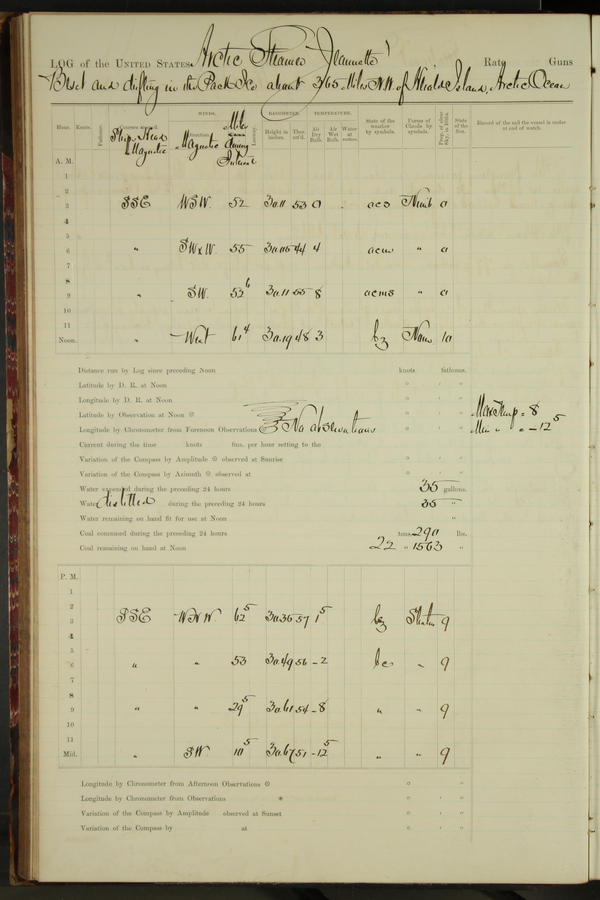 LOG of the UNITED STATES Arctic Steamer "Jeannette" Rate Guns
Beset and drifting in the Pack Ice about 365 Miles N.W. of Herald Island, Arctic Ocean
Hour. Knots. Fathoms. Courses Ship's Head Magnetic WINDS. Direction Magnetic Miles during Interval Leeway. BAROMETER. Height in inches. Ther. att'd. TEMPERATURE. Air Dry Bulb. Air Wet Bulb. Water at surface. State of the weather by symbols. Forms of Clouds by symbols. Prop. of clear Sky, in 10ths. State of the Sea. Record of the sail the vessel is under at end of watch.
A. M.
1
2
3 SSE WSW. 52 30.11 53 0 Nimb 0
4
5
6 " SWxW. 55 30.05 44 4 " 0
7
8
9 " SW. 52 6 30.11 55 8 " 0
10
11
Noon. " West 61 4 30.19 48 3 bz 10
Distance run by Log since preceding Noon knots fathoms.
Latitude by D. R. at Noon ° ' "
Longitude by D. R. at Noon ° ' "
Latitude by Observation at Noon ° ' " Max Temp = 8
Longitude by Chronometer from Forenoon Observations No observations ° ' " Min " = -12 5
Current during the time knots fms. per hour setting to the
Variation of the Compass by Amplitude observed at Sunrise ° ' "
Variation of the Compass by Azimuth observed at ° ' "
Water expended during the preceding 24 hours 35 gallons.
Water distilled during the preceding 24 hours 35 "
Water remaining on hand fit for use at Noon "
Coal consumed during the preceding 24 hours tons. 290 lbs.
Coal remaining on hand at Noon 22 " 1563 "
P. M.
1
2
3 SSE WNW 62 5 30.36 57 1 5 bz 9
4
5
6 " " 53 30.49 56 -2 bc " 9
7
8
9 " " 29 5 30.61 54 -8 " " 9
10
11
Mid. " SW 10 5 30.67 51 -12 5 " " 9
Longitude by Chronometer from Afternoon Observations ° ' "
Longitude by Chronometer from Observations * ° ' "
Variation of the Compass by Amplitude observed at Sunset ° ' "
Variation of the Compass by at ° ' "